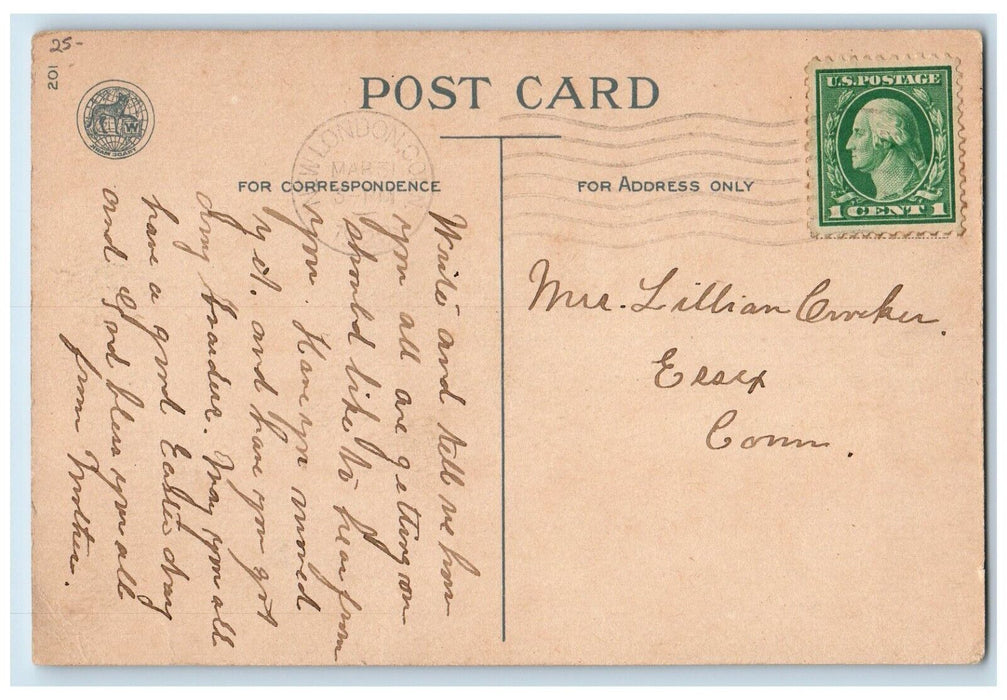 25-
201
POST CARD
U.S. POSTAGE
1 CENT 1
NEW LONDON, CO
MAR 31
FOR CORRESPONDENCE
FOR ADDRESS ONLY
W
Mrs. Lillian Crocker.
Essex
Conn.
Write and tell me how
you all are getting on
should like to hear from
you. Have you moved
yet. and have you got
any boarders. May you all
have a good Easter day
and God bless you all
from Mother.